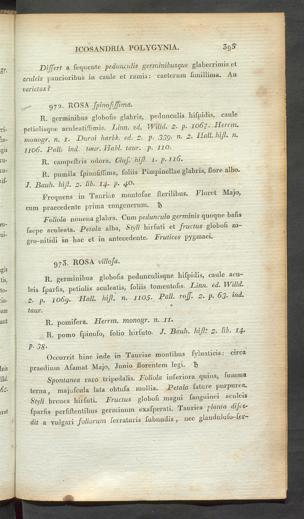 ICOSANDRIA POLYGYNIA. 395
Differt a sequente pedunculis germinibusque glaberrimis et
aculeis paucioribus in caule et ramis: caeterum simillima. An
varietas?
972. ROSA spinosissima.
R. germinibus globosis glabris, pedunculis hispidis, caule
petiolisque aculeatissimis. Linn. ed. Willd. 2. p. 1067. Herrm.
monogr. n. 1. Duroi harbk. ed. 2. p. 339. n. 2. Hall. hist. n.
1106. Pall. ind. taur. Habl. taur. p. 110.
R. campestris odora. Clus. hist. 1. p. 116.
R. pumila spinosissima, foliis Pimpinellae glabris, flore albo.
J. Bauh. hist. 2. lib. 14. p. 40.
Frequens in Tauriae montosae sterilibus. Floret Majo,
cum praecedente prima congenerum. ♄
Foliola novena glabra. Cum pedunculo germinis quoque basis
saepe aculeata. Petala alba, Styli hirsuti et fructus globosi ni-
gro-nitidi in hac et in antecedente. Frutices pygmaei.
973. ROSA villosa.
R. germinibus globosis pedunculisque hispidis, caule acu-
leis sparsis, petiolis aculeatis, foliis tomentosis. Linn. ed. Willd.
2. p. 1069. Hall. hist. n. 1105. Pall. ross. 2. p. 63. ind.
taur.
R. pomifera. Herrm. monogr. n. 11.
R. pomo spinoso, folio hirsuto. J. Bauh. hist. 2. lib. 14.
p. 38.
Occurrit hinc inde in Tauriae montibus sylvaticis: circa
praedium Asamat Majo, Junio florentem legi. ♄
Spontanea raro tripedalis. Foliola inferiora quina, summa
terna, majuscula lata obtusa mollia. Petala sature purpurea.
Styli breves hirsuti. Fructus globosi magni sanguinei aculeis
sparsis persistentibus germinum exasperati. Taurica planta disce-
dit a vulgari foliorum serraturis subnudis, nec glanduloso-ser-